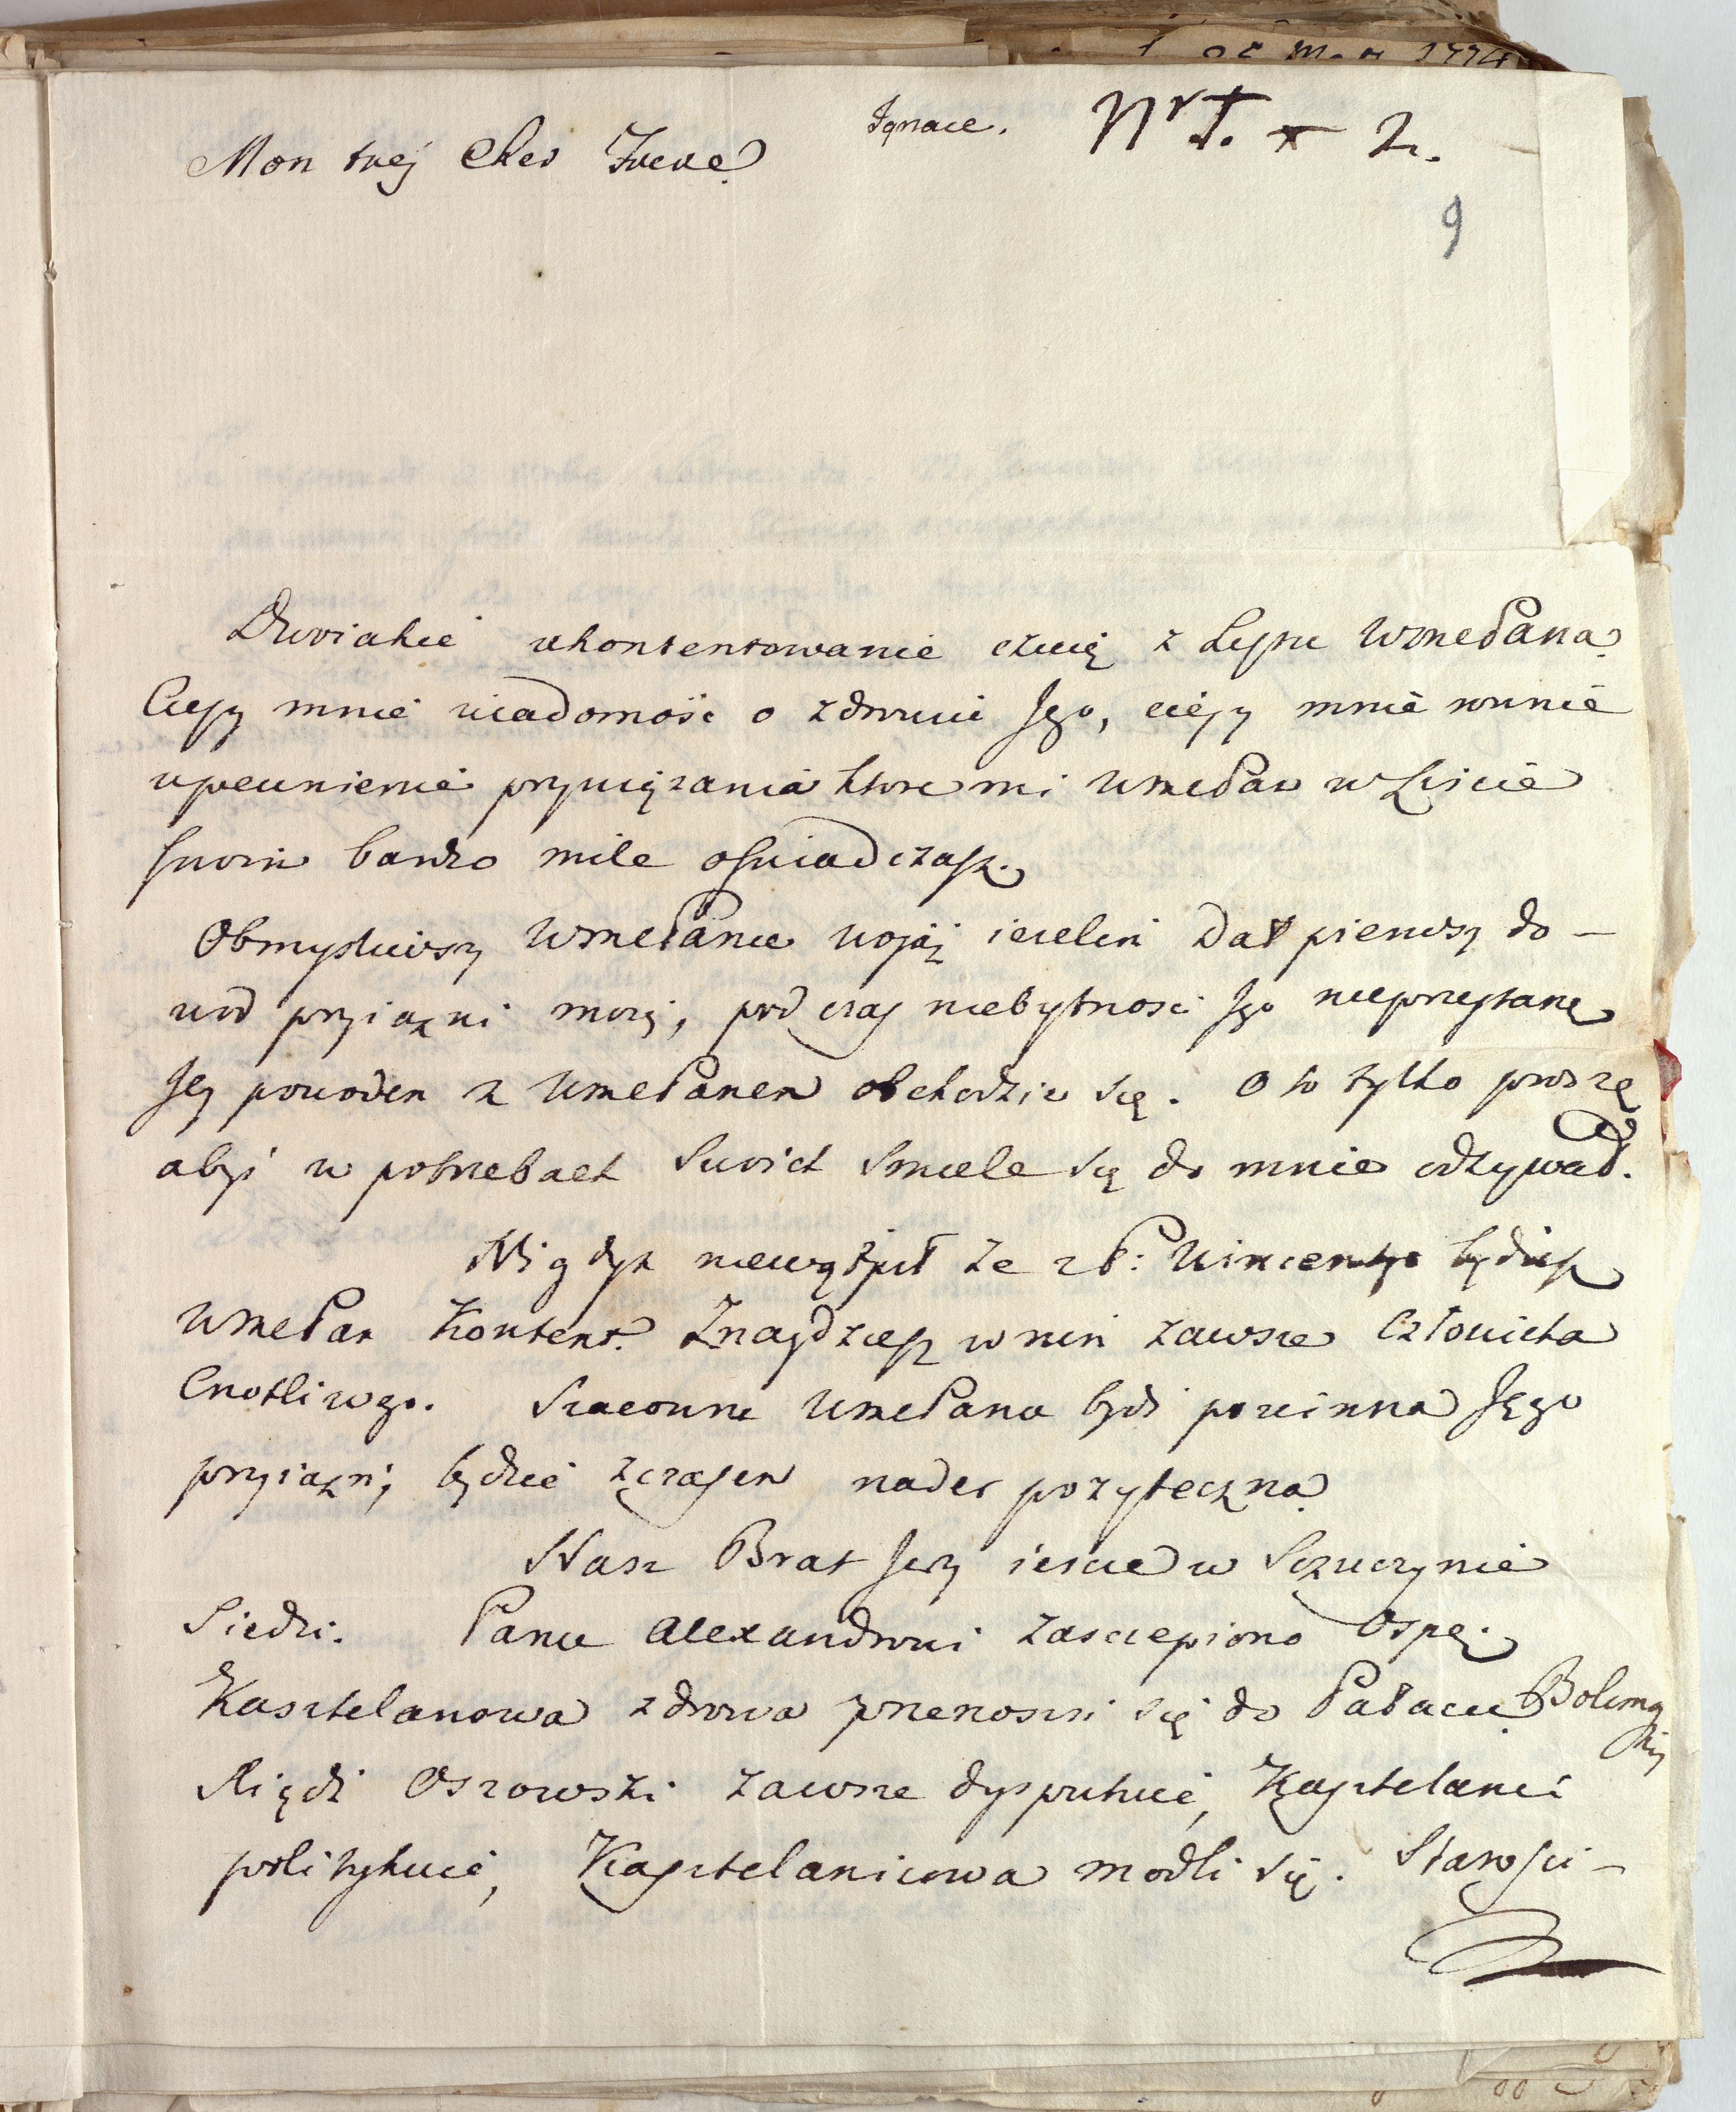 Mon trej cher Frere
Ignace.
Nr I. x 2.
9
Dwoiakie ukontentowanie czuię z Lystu WmcPana
Ciesy mnie wiadomość o zdrowiu Jego, ciesy mnie wunie
upewnienie przywiązania ktore mi WmcPan w Liscie
swoim bardzo mile oswiadczasz.
Obmysliwszy WmcPanu woiaż ieżelim Dał pierwszy do-
wod przyiazni moiey, pod czas niebytnosci Jego nieprzestanę
Jey powodem z WmcPanem obchodzic się. O to tylko proszę
abyś w potrzebach Swoich Smiele się do mnie odzywał.
Nigdym niewątpił że z P: Wincentego będziesz
WmcPan Kontent. Znaydziesz w nim zawsze Człowieka
Cnotliwego. Szacowna WmcPanu bydź powinna Jego
przyiazn, będzie z czasem nader pożyteczna
Nasz Brat Jerzy iescze w Sczuczynie
Siedzi. Panu Alexandrowi zasczepiono Ospę.
Kasztelanowa zdrowa przenosi się do Pałacu
Xiądz Osrowski zawsze dysputuie, Kasztelanic
politykuie, Kasztelanicowa modli się. Starosci-